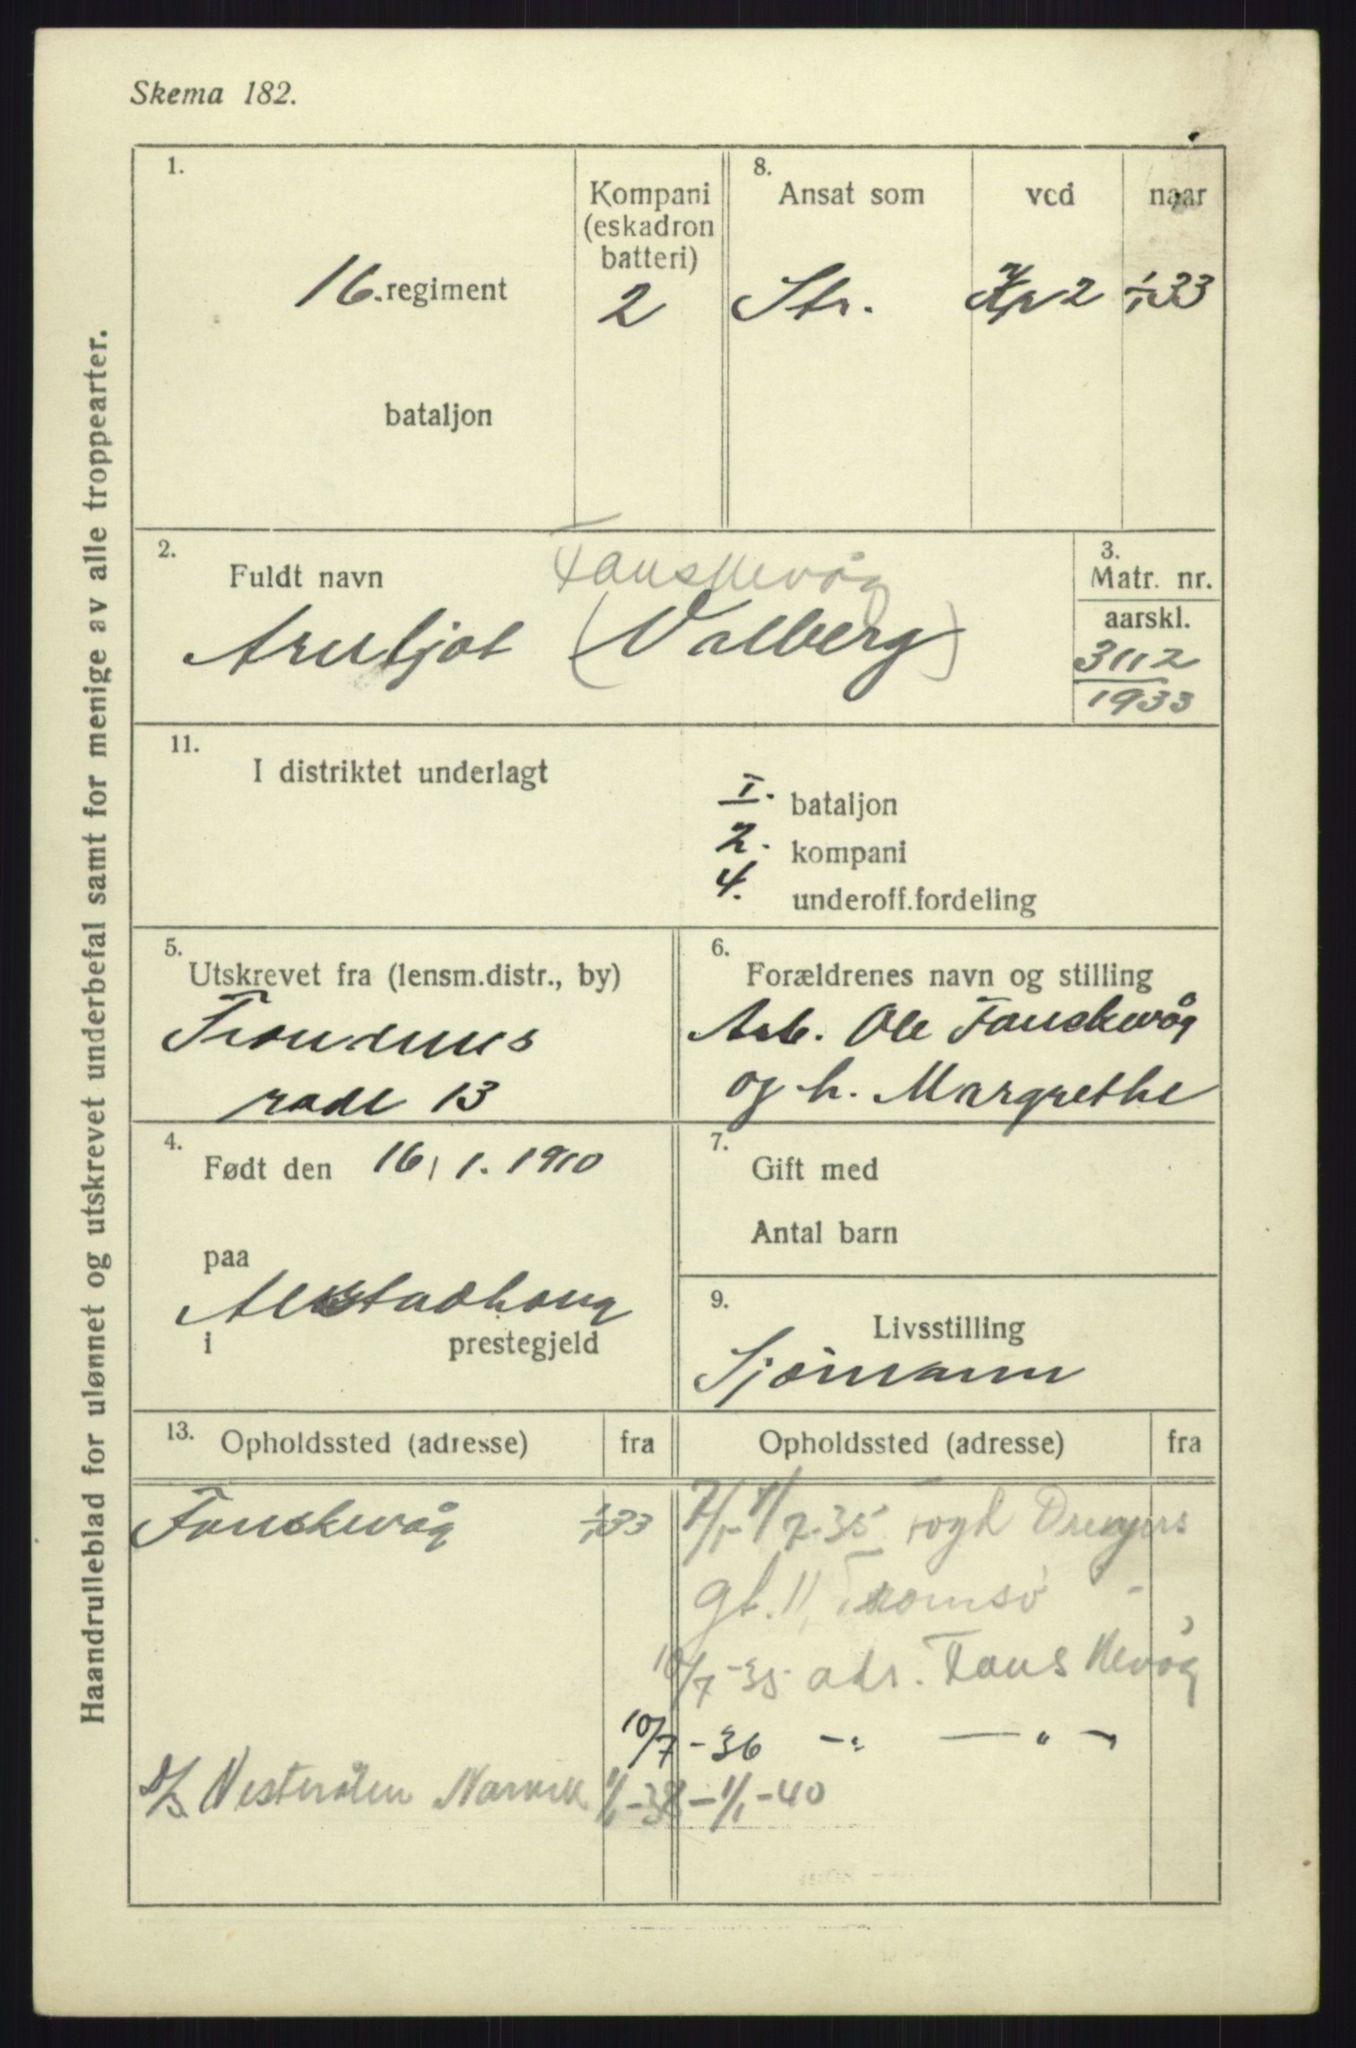 Skema 182.
Haandrulleblad for ulønnet og utskrevet underbefal samt for menige av alle troppearter.
1.
16. regiment
bataljon
Kompani
(eskadron
batteri)
2
8.
Ansat som
Str.
ved
Kp 2
naar
1/1 33
2.
Fuldt navn
Fauskevåg
Arnljot (Valberg)
3.
Matr. nr.
aarskl.
3112
1933
11.
I distriktet underlagt
I. bataljon
2. kompani
4. underoff.fordeling
5.
Utskrevet fra (lensm.distr., by)
Trondenes
rode 13
6.
Forældrenes navn og stilling
Arb. Ole Fauskevåg
og h. Margrethe
4.
Født den 16/1. 1910
paa
Alstadhoug
i prestegjeld
7.
Gift med
Antal barn
9.
Livsstilling
Sjömann
13.
Opholdssted (adresse) fra
Fauskevåg 1/1 33
D/S Vesterålen Narvik 1/1-38-1/1-40
Opholdssted (adresse) fra
7/1-1/7-35 Fogd Dreyers
gt. 11, Tromsö -
10/7-35 adr. Fauskevåg
10/7-36 -"- -"-